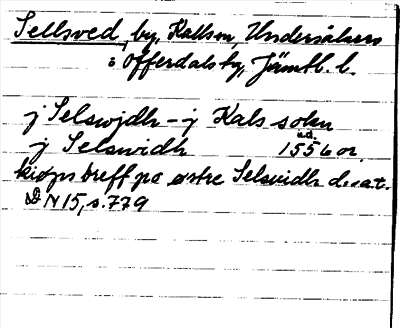 Sellsved, by, Kallsn, Undersåkers
o Offerdals tg, Jämtl. l.
j Selswjdh – j Kals sokn
j Selsvidh 1556 or.
u.d.
kiøps breff pa østre Selsvidh d.s.a.t.
DN 15, s. 779